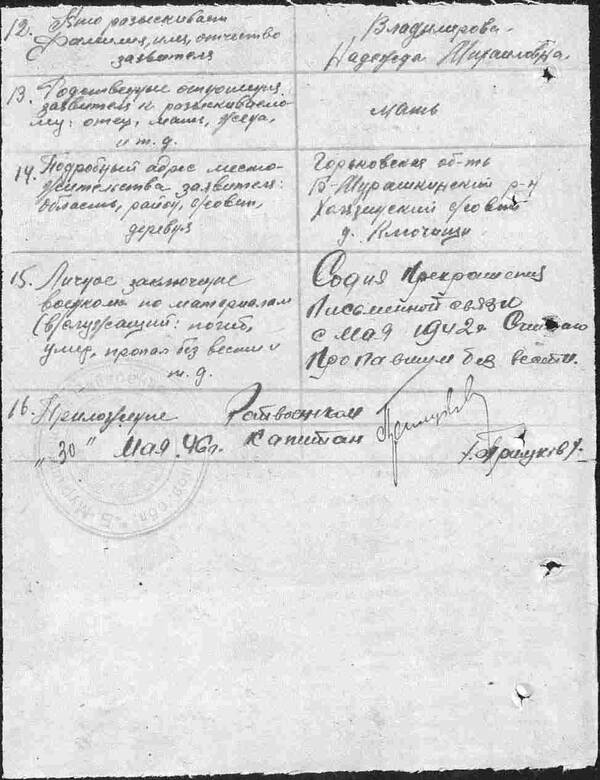 12. Кто разыскивает
фамилия, имя, отчество
заявителя
Владимирова
Надежда Михайловна.
13. Родственные отношения
заявителя к разыскиваемо-
му: отец, мать, жена,
и т.д.
мать
14. Подробный адрес место-
жительства заявителя:
область, район, с/совет,
деревня
Горьковская об-ть
Б-Мурашкинский р-н
с/совет
д. Ключищи
15. Личное заключение
военкома по материалам
(в/служащий: погиб,
умер, пропал без вести и
т.д.
Со дня Прекращения
Письменной связи
с мая 1942г. Считаю
Пропавшим без вести.
16. Приложение
"30" Мая 46г.
Райвоенком
Капитан